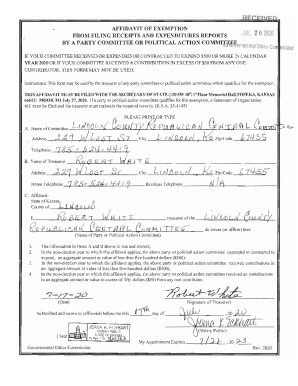 RECEIVED
JUL 20 2020
AFFIDAVIT OF EXEMPTION
FROM FILING RECEIPTS AND EXPENDITURES REPORTS
BY A PARTY COMMITTEE OR POLITICAL ACTION COMMITTEE
IF YOUR COMMITTEE RECEIVED OR EXPENDED OR CONTRACTED TO EXPEND $500 OR MORE IN CALENDAR
YEAR 2020 OR IF YOUR COMMITTEE RECEIVED A CONTRIBUTION IN EXCESS OF $50 FROM ANY ONE
CONTRIBUTOR, THIS FORM MAY NOT BE USED.
Instructions: This form may be used by the treasurer of any party committee or political action committee which qualifies for the exemption.
THIS AFFIDAVIT MUST BE FILED WITH THE SECRETARY OF STATE (120 SW 10th, 1st Floor Memorial Hall, TOPEKA, KANSAS
66612) PRIOR TO July 27, 2020.
PLEASE PRINT OR TYPE
A. Name of Committee LINCOLN COUNTY REPUBLICAN CENTRAL
Address 227 W LOST ST City LINCOLN, KS Zip Code 67455
Telephone 785-524-4419
B. Name of Treasurer ROBERT WHITE
Address 227 W LOST ST City LINCOLN, KS Zip Code 67455
Home Telephone 785-524-4419 Business Telephone N/A
C. Affidavit:
State of Kansas
County of LINCOLN
I, ROBERT WHITE treasurer of the LINCOLN COUNTY
REPUBLICAN CENTRAL COMMITTEE do swear (or affirm) that:
(Name of Party or Political Action Committee)
1. The information in Boxes A and B above is true and correct.
2. In the non-election year to which this affidavit applies, the above party or political action committee expended or contracted
to expend, an aggregate amount or value of less than five hundred dollars ($500).
3. In the non-election year to which this affidavit applies, the above party or political action committee received contributions in
an aggregate amount or value of less than five hundred dollars ($500).
4. In the non-election year to which this affidavit applies, the above party or political action committee received no contributions
in an aggregate amount or value in excess of fifty dollars ($50) from any one contributor.
7-17-20 Robert White
(Date) (Signature of Treasurer)
Subscribed and sworn to (affirmed) before me this 17th day of July 2020
(Notary Public)
My Appointment Expires 7/22 2023
Governmental Ethics Commission Rev. 2020